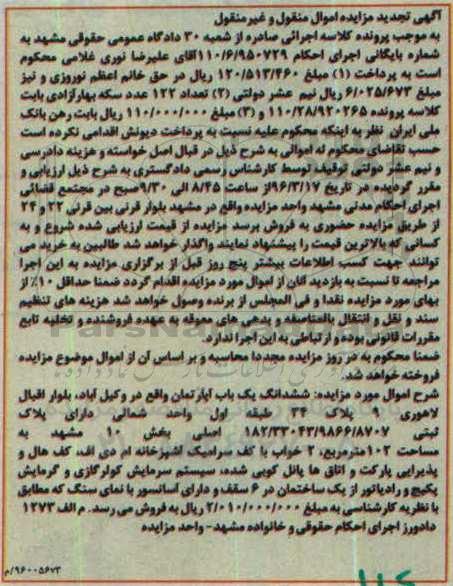 آگهی تجدید مزایده اموال منقول و غیرمنقول
به موجب پرونده کلاسه اجرائی صادره از شعبه ۳۰ دادگاه عمومی حقوقی مشهد به
شماره بایگانی اجرای احکام ۱۱۰/۶/۹۵۰۷۲۹آقای علیرضا نوری غلامی محکوم
است به پرداخت (۱) مبلغ ۱۲۰/۵۱۳/۴۶۰ ریال در حق خانم اعظم نوروزی و نیز
مبلغ ۶/۰۲۵/۶۷۳ ریال نیم عشر دولتی (۲) تعداد ۱۲۲ عدد سکه بهارآزادی بابت
کلاسه پرونده ۱۱۰/۲۸/۹۲۰۲۶۵ و (۳) مبلغ ۱۱۰/۰۰۰/۰۰۰ ریال بابت رهن بانک
ملی ایران نظر به اینکه محکوم علیه نسبت به پرداخت دیونش اقدامی نکرده است
حسب تقاضای محکوم له اموالی به شرح ذیل در قبال اصل خواسته و هزینه دادرسی
و نیم عشر دولتی توقیف توسط کارشناس رسمی دادگستری به شرح ذیل ارزیابی و
مقرر گردیده در تاریخ ۹۶/۳/۱۷از ساعت ۸/۴۵ الی ۹/۳۰صبح در مجتمع قضائی
اجرای احکام مدنی مشهد واحد مزایده واقع در مشهد بلوار قرنی بین قرنی ۲۲ و ۲۴
از طریق مزایده حضوری به فروش برسد مزایده از قیمت ارزیابی شده شروع و به
کسانی که بالاترین قیمت را پیشنهاد نمایند واگذار خواهد شد طالبین به خرید می
توانند جهت کسب اطلاعات بیشتر پنج روز قبل از برگزاری مزایده به این اجرا
مراجعه تا نسبت به بازدید آنان از اموال مورد مزایده اقدام گردد ضمنا حداقل ۱۰٪ از
بهای مورد مزایده نقدا و فی المجلس از برنده وصول خواهد شد هزینه های تنظیم
سند و نقل و انتقال بالمناصفه و بدهی های معوقه به عهده فروشنده و تخلیه تابع
مقررات قانونی بوده و ارتباطی به این اجرا ندارد.
ضمنا محکوم به در روز مزایده مجددا محاسبه و بر اساس آن از اموال موضوع مزایده
فروخته خواهد شد.
شرح اموال مورد مزایده: ششدانگ یک باب آپارتمان واقع در وکیل آباد، بلوار اقبال
لاهوری پلاک ۳۴ طبقه اول واحد شمالی دارای پلاک
ثبتی ۱۸۲/۳۳۰۴۳/۹۸۶۶/۸۷۰۷ اصلی بخش ۱۰ مشهد به
مساحت ۱۰۲مترمربع، ۲ خواب با کف سرامیک آشپزخانه ام دی اف، کف هال و
پذیرایی پارکت و اتاق ها پانل کوبی شده، سیستم سرمایش کولرگازی و گرمایش
پکیج و رادیاتور از یک ساختمان در ۶ سقف و دارای آسانسور با نمای سنگ که مطابق
با نظریه کارشناسی به مبلغ ۲/۰۱۰/۰۰۰/۰۰۰ ریال به فروش می رسد. م الف ۱۲۷۳
دادورز اجرای احکام حقوقی و خانواده مشهد- واحد مزایده
۹۶۰۰۵۶۷۳/م